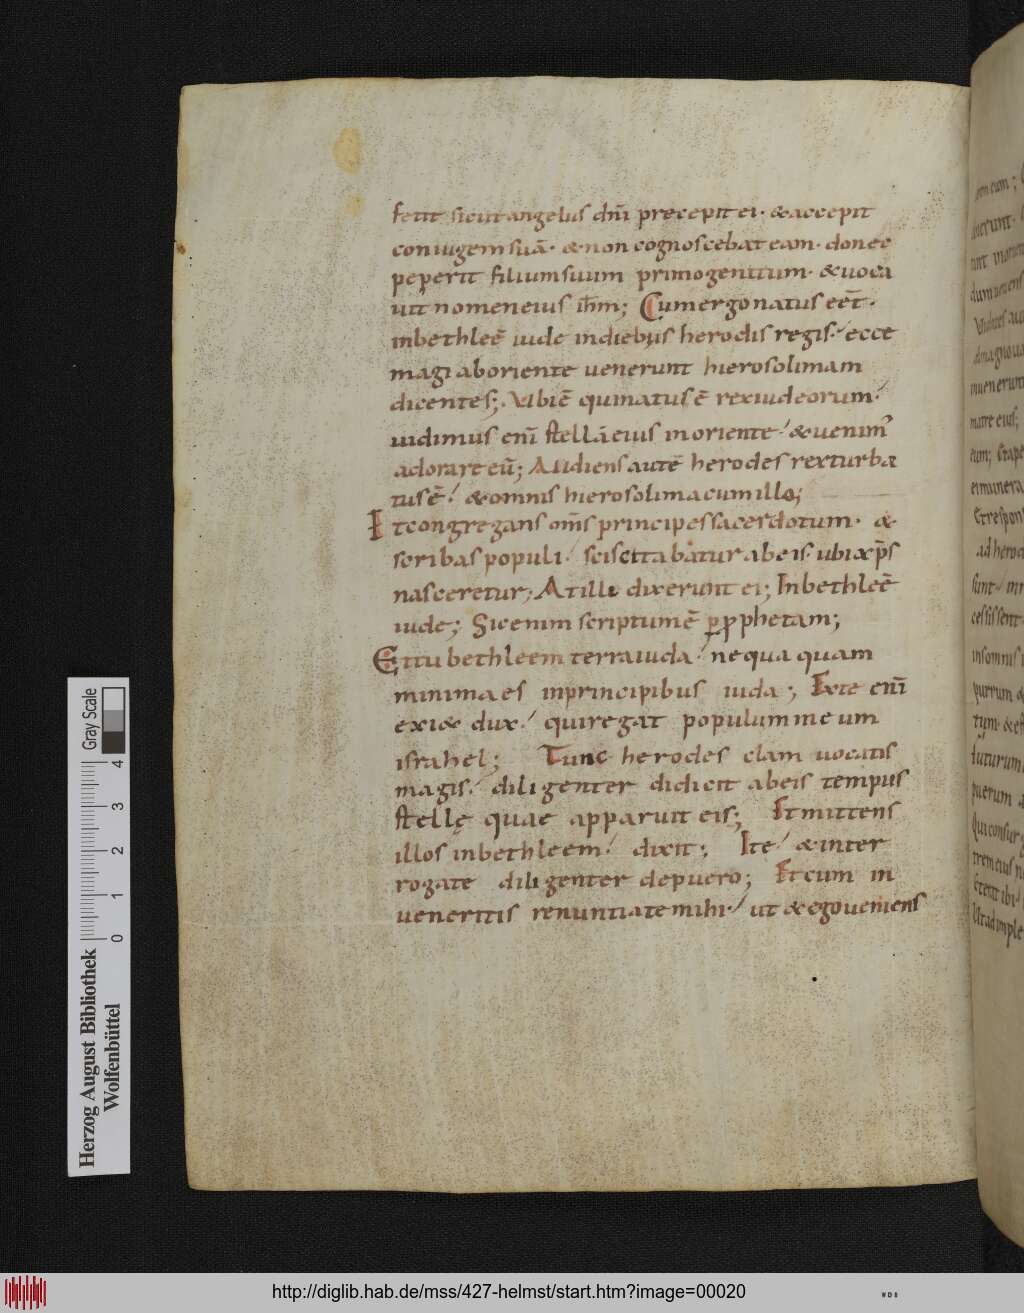 fecit sicut angelus dn̄i precepit ei· & accepit
coniugem suā· & non cognoscebat eam· donec
peperit filium suum primogenitum· & uoca
uit nomen eius ih̄m; Cum ergo natus eēt·
in bethleē iude in diebus herodis regis·/ ecce
magi ab oriente uenerunt hierosolimam
dicentes; Vbi ē qui natus ē rex iudeorum·/
uidimus eni̅ stellā eius in oriente·/ & uenim᾽
adorare eū; Audiens autē herodes rex turba
tus ē·/ & omnis hierosolima cum illo;
Et congregans om̄s principes sacerdotum· &
scribas populi·/ sciscitabatur ab eis· ubi xp̄s
nasceretur; At illi dixerunt ei; In bethleē
iude; Sic enim scriptum ē p̲ p̲phetam;
Et tu bethleem terra iuda·/ nequaquam
minima es in principibus iuda; Ex te eni̅
exi& dux·/ qui regat populum meum
israhel; Tunc herodes clam uocatis
magis·/ diligenter didicit ab eis tempus
stellę quae apparuit eis; Et mittens
illos in bethleem·/ dixit; Ite·/ & inter
rogate diligenter de puero; Et cum in
ueneritis renuntiate mihi·/ ut & ego ueniens
Herzog August Bibliothek
Wolfenbüttel
0 1 2 3 4
Gray Scale
http://diglib.hab.de/mss/427-helmst/start.htm?image=00020